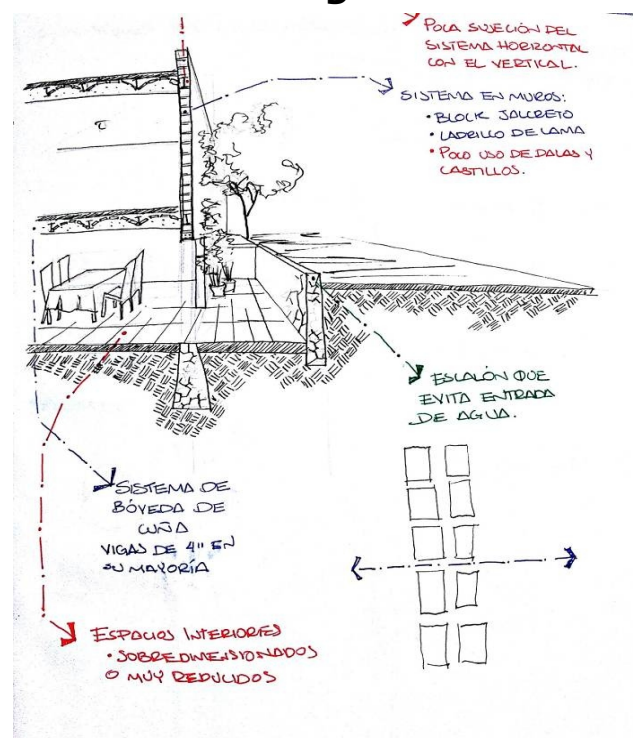 POCA SUJECIÓN DEL
SISTEMA HORIZONTAL
CON EL VERTICAL.
SISTEMA EN MUROS:
• BLOCK JALCRETO
• LADRILLO DE LAMA
• POCO USO DE DALAS Y
CASTILLOS.
ESCALÓN QUE
EVITA ENTRADA
DE AGUA.
SISTEMA DE
BÓVEDA DE
CUÑA
VIGAS DE 4" EN
SU MAYORÍA
ESPACIOS INTERIORES
• SOBREDIMENSIONADOS
O MUY REDUCIDOS